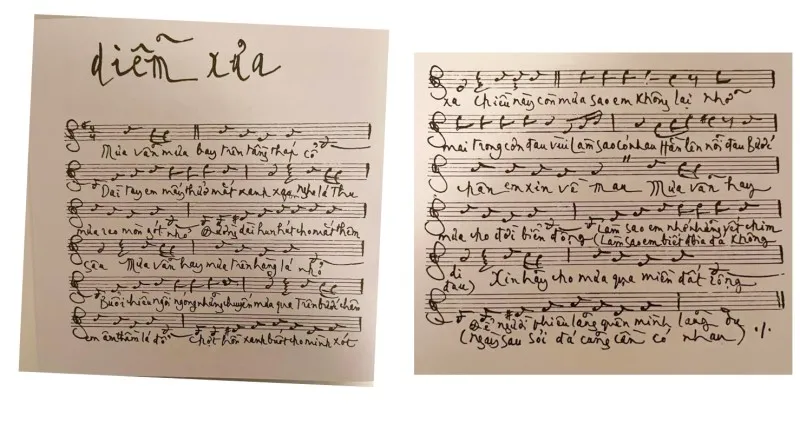 diễm xưa
Mưa vẫn mưa bay trên tầng tháp cổ
Dài tay em mấy thuở mắt xanh xao Nghe lá thu
mưa reo mòn gót nhỏ Đường dài hun hút cho mắt thêm
sâu Mưa vẫn hay mưa trên hàng lá nhỏ
Buổi chiều ngồi ngóng những chuyến mưa qua Trên bước chân
em âm thầm lá đổ Chợt hồn xanh buốt cho mình xót
xa Chiều này còn mưa sao em không lại nhớ
mãi trong cơn đau vùi Làm sao có nhau Hằn lên nỗi đau Bước
chân em xin về mau Mưa vẫn hay
mưa cho đời biển động Làm sao em nhớ những vết chim
(Làm sao em biết bia đá không
di Xin hãy cho mưa qua miền đất rộng
đau)
Để người phiêu lãng quên mình lãng du
(Ngày sau sỏi đá cũng cần có nhau)